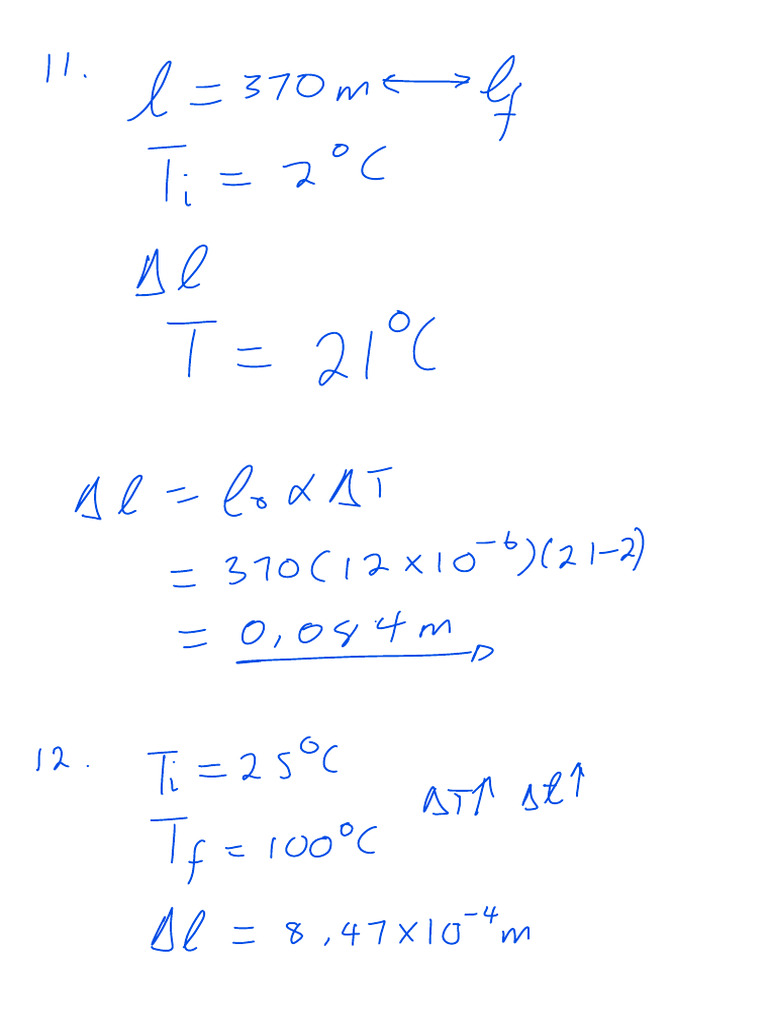 11. l = 370 m ⟷ lf
Ti = 2°C
Δl
T = 21°C
Δl = l₀ α ΔT
= 370(12 × 10⁻⁶)(21-2)
= 0,084 m
12. Ti = 25°C
ΔT↑ Δl↑
Tf = 100°C
Δl = 8,47 × 10⁻⁴ m